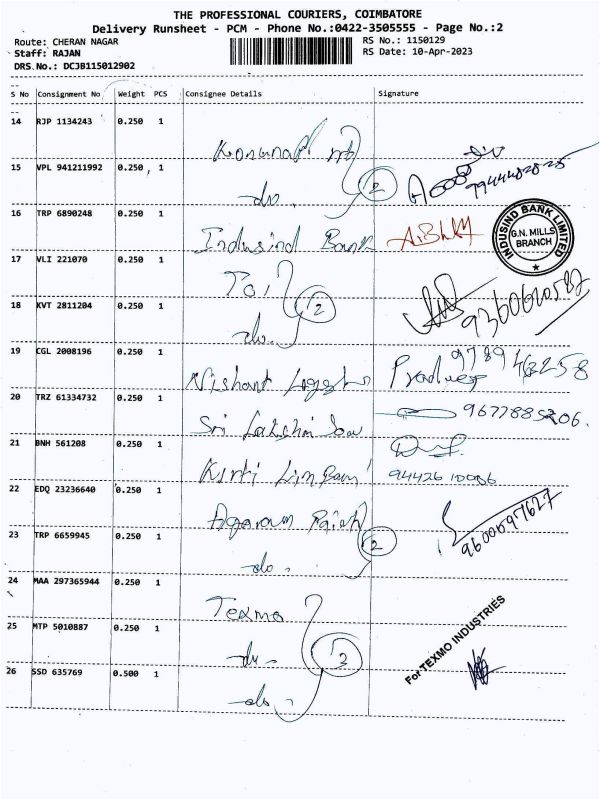 THE PROFESSIONAL COURIERS, COIMBATORE
Delivery Runsheet - PCM - Phone No.:0422-3505555 - Page No.:2
Route: CHERAN NAGAR
RS No.: 1150129
Staff: RAJAN
RS Date: 10-Apr-2023
DRS No.: DCJB115012902
S No Consignment No Weight PCS Consignee Details Signature
14 RJP 1134243 0.250 1
15 VPL 941211992 0.250 1 do. 2
16 TRP 6890248 0.250 1 Indusind Bank
INDUSIND BANK LIMITED
G.N. MILLS
BRANCH
17 VLI 221070 0.250 1
18 KVT 2811204 0.250 1 do. 2
19 CGL 2008196 0.250 1 Nishant
20 TRZ 61334732 0.250 1 Sri Lakshmi
21 BNH 561208 0.250 1 94426 10086
22 EDQ 23236640 0.250 1
23 TRP 6659945 0.250 1 do. 2 9600597627
24 MAA 297365944 0.250 1 Texmo
25 MTP 5010887 0.250 1 do. 3
For TEXMO INDUSTRIES
26 SSD 635769 0.500 1 do.